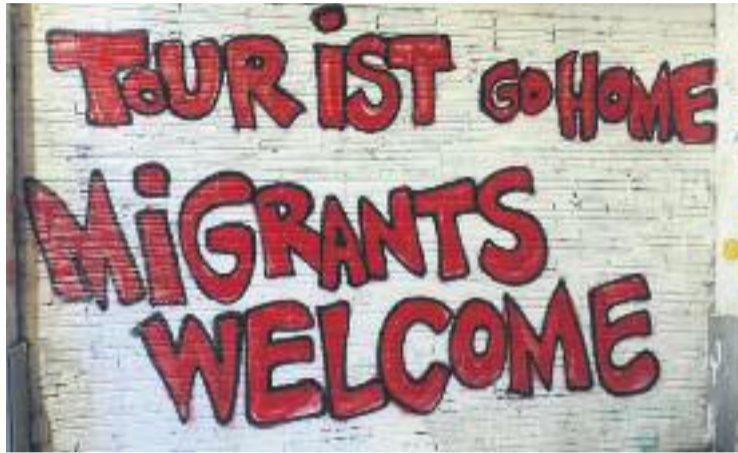 TOURiST GO HOME
MiGRANTS
WELCOME